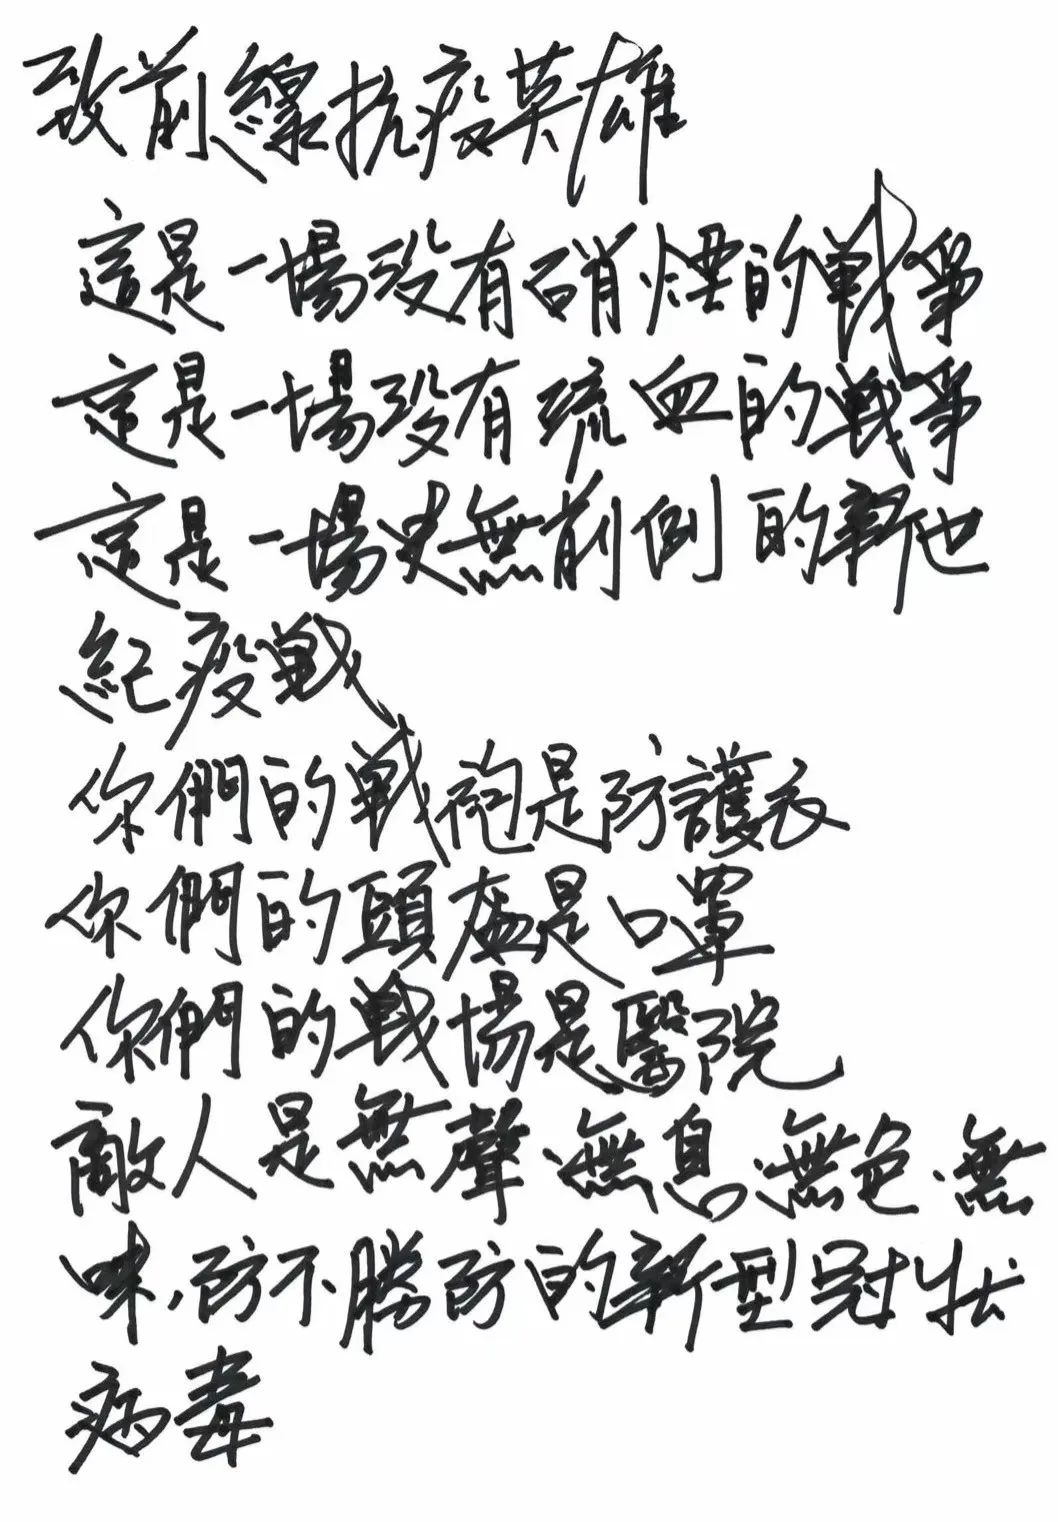 致前線抗疫英雄
這是一場沒有硝煙的戰爭
這是一場沒有流血的戰爭
這是一場史無前例的新世
紀疫戰
你們的戰袍是防護衣
你們的頭盔是口罩
你們的戰場是醫院
敵人是無聲·無息·無色·無
味,防不勝防的新型冠狀
病毒